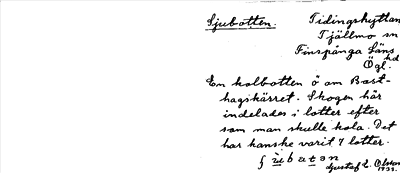 Sjubotten. Tidingshyttan
Tjällmo sn
Finspånga Läns hd
Ögl.
En kolbotten ö om Bast-
hagskärret. Skogen här
indelades i lotter efter
som man skulle kola. Det
har kanske varit 7 lotter.
Gustaf E. Olson